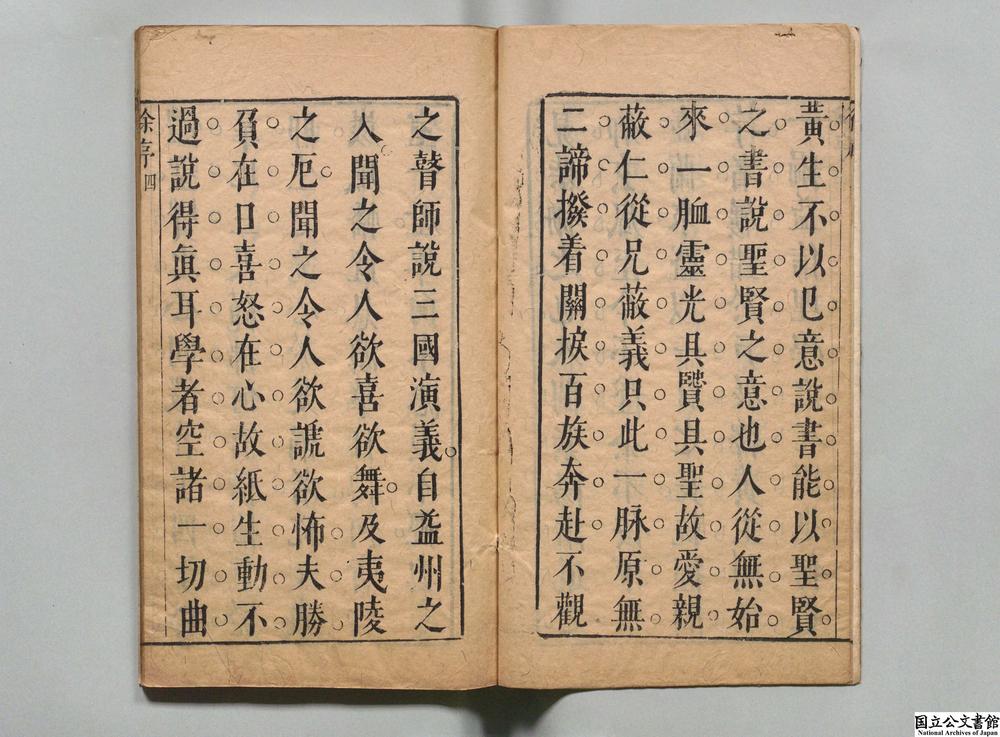 黃生不以己意說書能以聖賢
之書說聖賢之意也人從無始
來一脉靈光具賢具聖故愛親
蔽仁從兄蔽義只此一脉原無
二諦撥着關捩百族奔赴不觀
之瞽師說三國演義自益州之
人聞之令人欲喜欲舞及夷陵
之厄聞之令人欲謊欲怖夫勝
負在口喜怒在心故紙生動不
過說得眞耳學者空諸一切曲
徐序 四
国立公文書館
National Archives of Japan